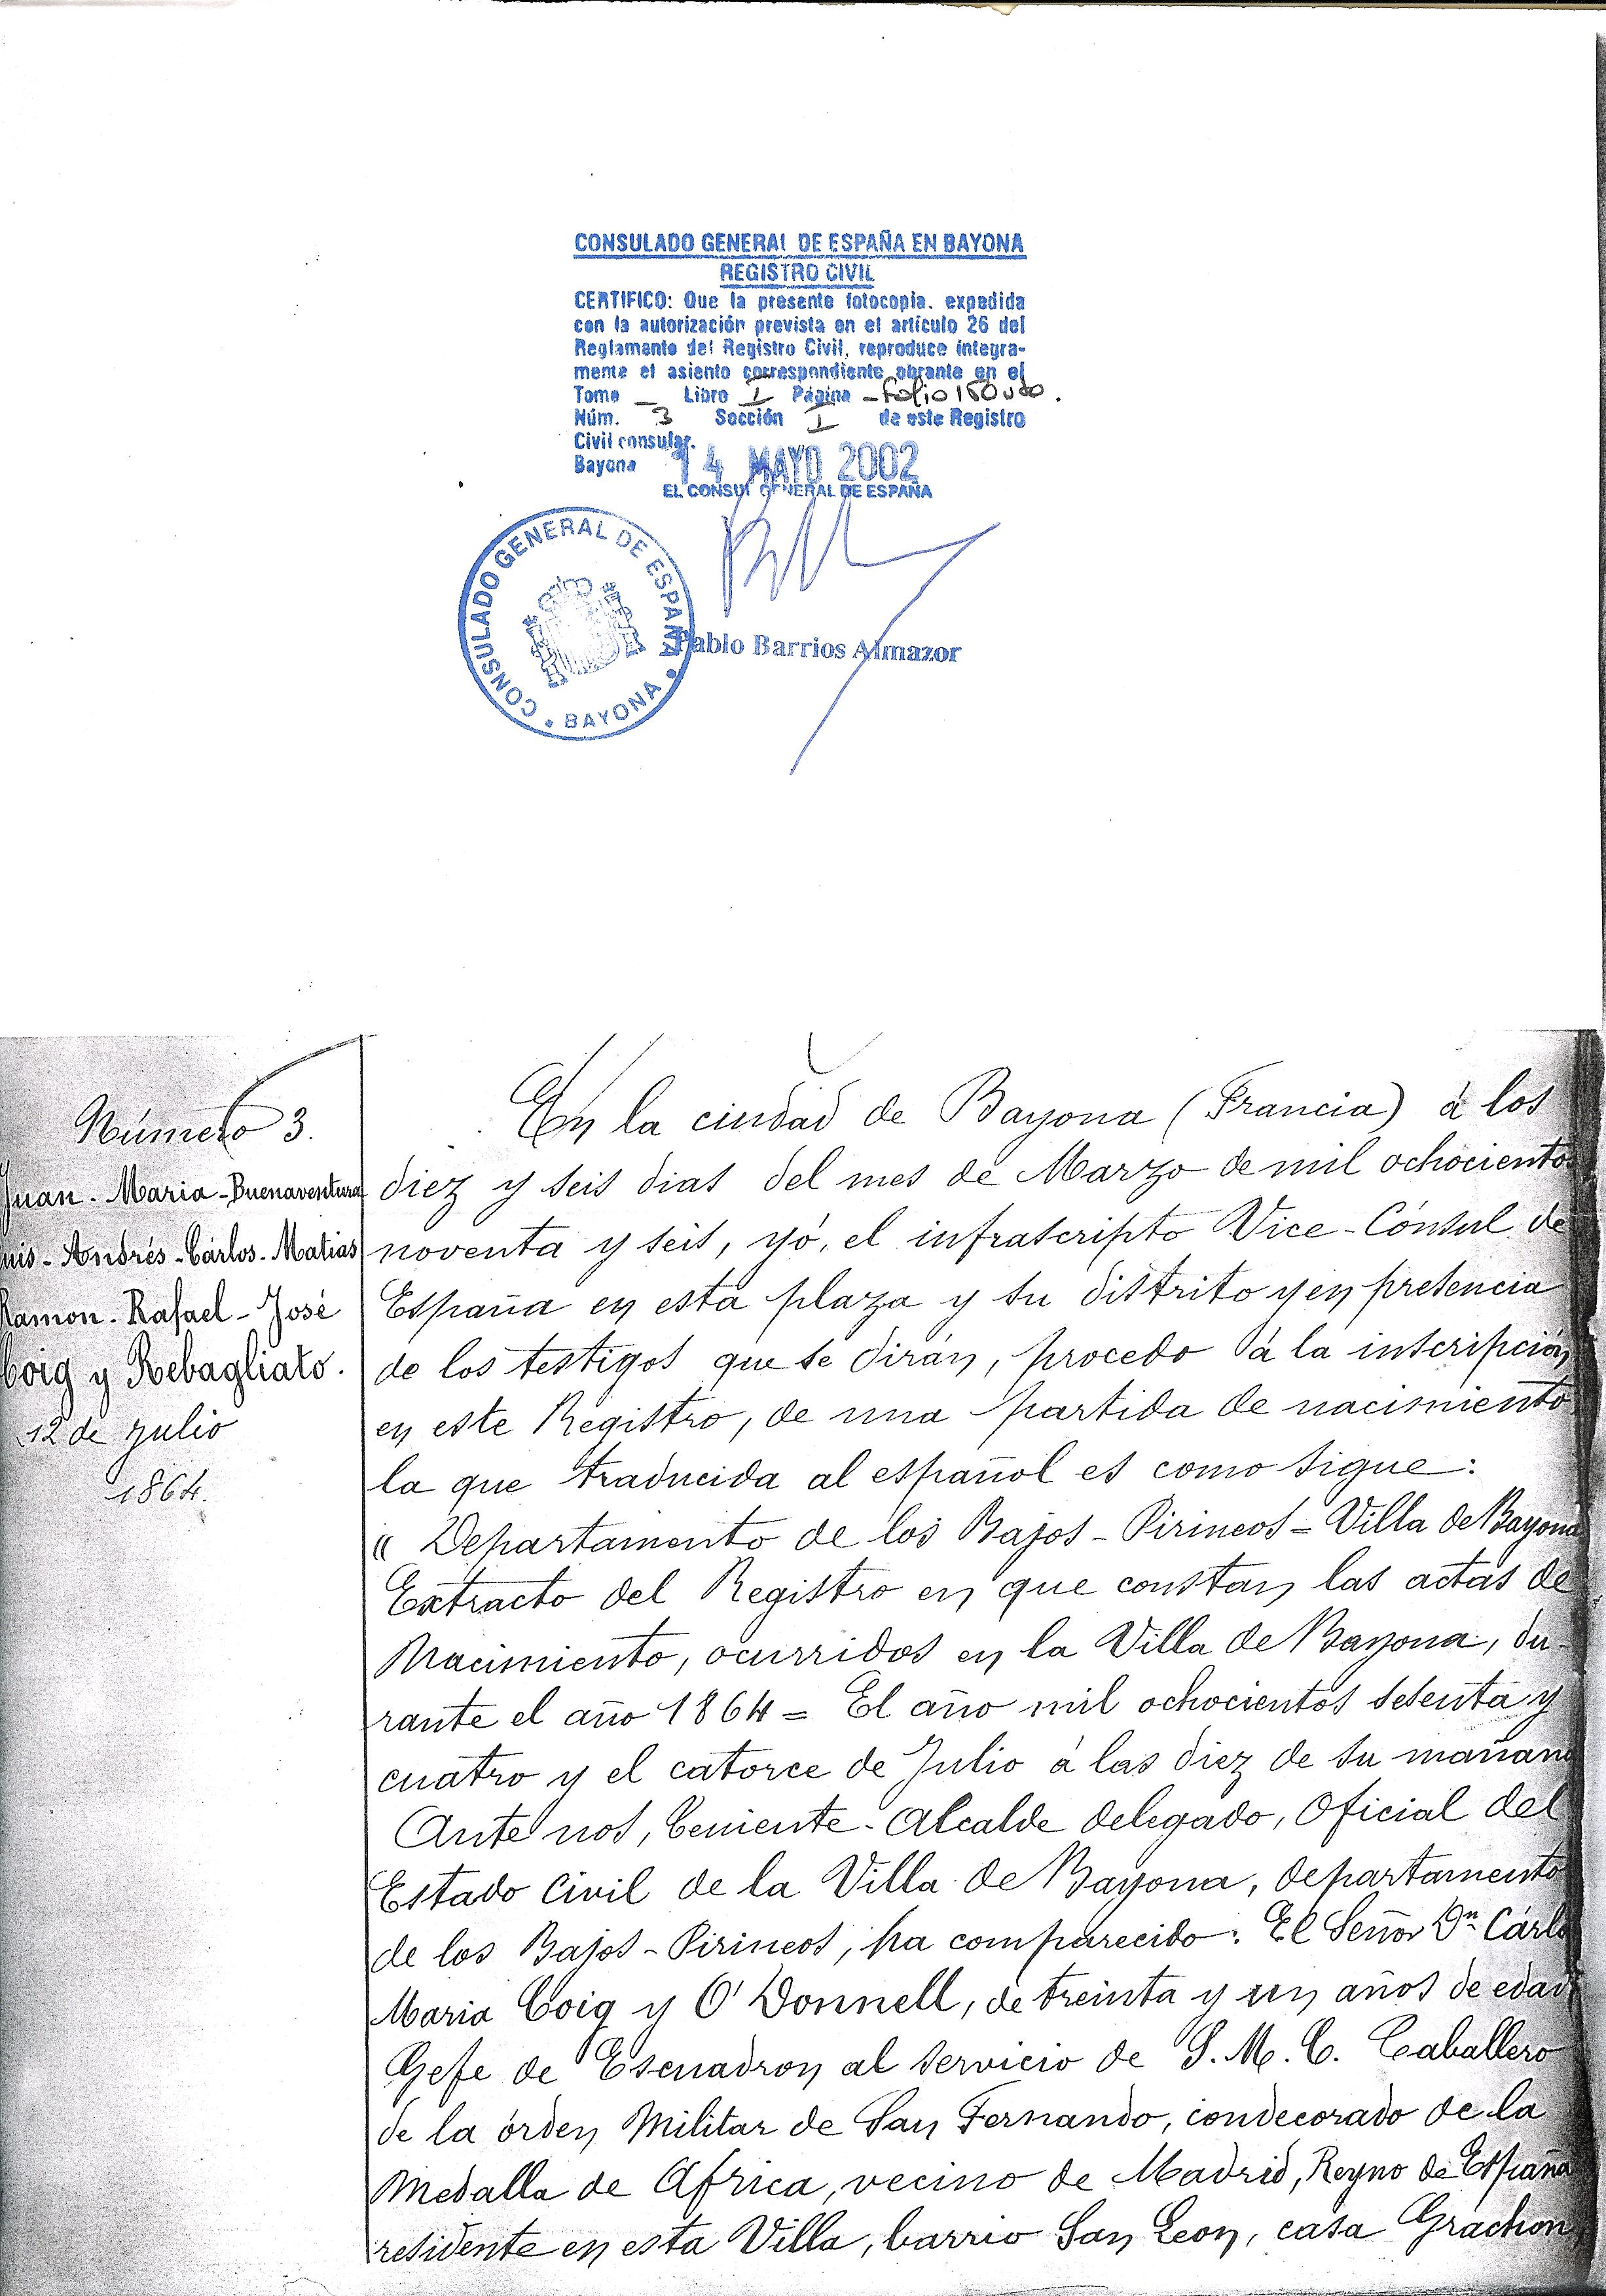 CONSULADO GENERAL DE ESPAÑA EN BAYONA
REGISTRO CIVIL
CERTIFICO: Que la presente fotocopia, expedida
con la autorización prevista en el artículo 26 del
Reglamento del Registro Civil, reproduce íntegra-
mente el asiento correspondiente obrante en el
Tomo — Libro I Página - folio 150 vto.
Núm. 3 Sección I de este Registro
Civil consular.
Bayona 14 MAYO 2002
EL CONSUL GENERAL DE ESPAÑA
CONSULADO GENERAL DE ESPAÑA • BAYONA •
Pablo Barrios Almazor
Número 3.
Juan - Maria - Buenaventura
Luis - Andrés - Cárlos - Matias
Ramon - Rafael - José
Coig y Rebagliato.
12 de Julio
1864.
En la ciudad de Bayona (Francia) á los
diez y seis dias del mes de Marzo de mil ochocientos
noventa y seis, yó, el infrascripto Vice-Cónsul de
España en esta plaza y su distrito y en presencia
de los testigos que se dirán, procedo á la inscripción
en este Registro, de una partida de nacimiento
la que traducida al español es como sigue:
" Departamento de los Bajos-Pirineos = Villa de Bayona
Extracto del Registro en que constan las actas de
Nacimiento, ocurridos en la Villa de Bayona, du-
rante el año 1864 = El año mil ochocientos sesenta y
cuatro y el catorce de Julio á las diez de su mañana
Ante nos, Teniente-Alcalde delegado, Oficial del
Estado Civil de la Villa de Bayona, departamento
de los Bajos-Pirineos, ha comparecido: El Señor Dn Cárlos
Maria Coig y O'Donnell, de treinta y un años de edad
Gefe de Escuadron al servicio de S. M. C. Caballero
de la órden Militar de San Fernando, condecorado de la
Medalla de Africa, vecino de Madrid, Reyno de España
residente en esta Villa, barrio San Leon, casa Grachon